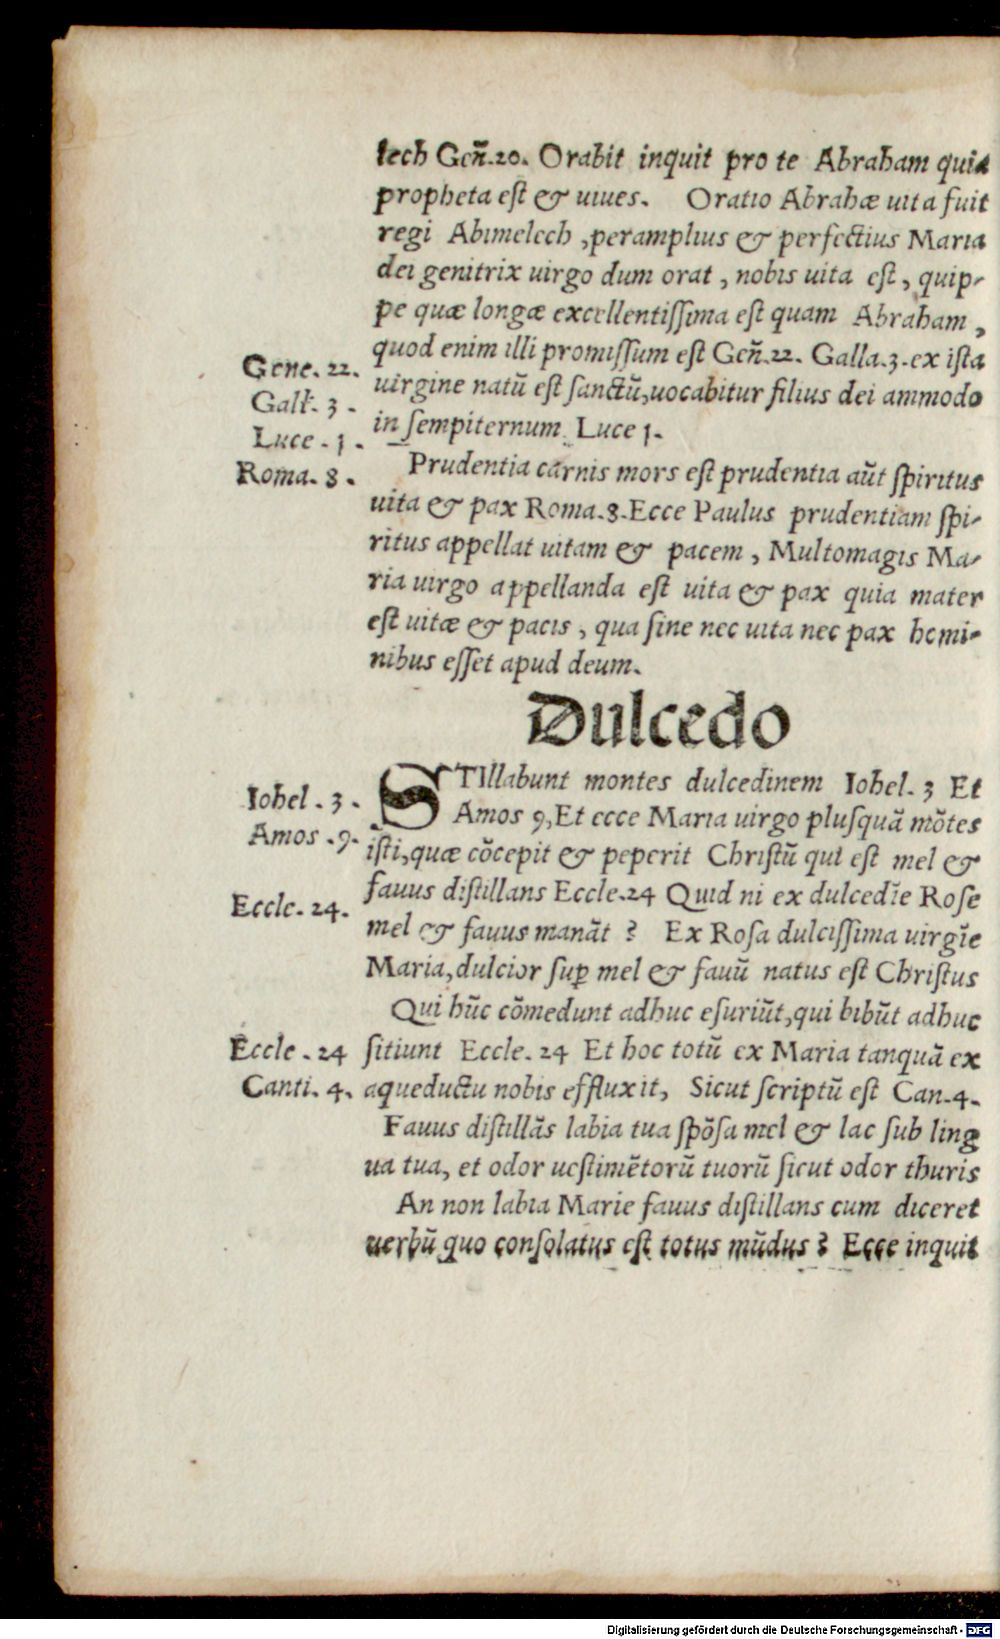 lech Geñ.20. Orabit inquit pro te Abraham quia
propheta est & uiues. Oratio Abrahæ uita fuit
regi Abimelech, peramplius & perfectius Maria
dei genitrix uirgo dum orat, nobis uita est, quip-
pe quæ longæ excellentissima est quam Abraham,
quod enim illi promissum est Geñ.22. Galla.3. ex ista
Gene. 22.
uirgine natū est sanctū, uocabitur filius dei ammodo
Gall. 3.
in sempiternum. Luce 1.
Luce. 1.
Prudentia carnis mors est prudentia aūt spiritus
Roma. 8.
uita & pax Roma.8. Ecce Paulus prudentiam spi-
ritus appellat uitam & pacem, Multomagis Ma-
ria uirgo appellanda est uita & pax quia mater
est uitæ & pacis, qua sine nec uita nec pax homi-
nibus esset apud deum.
Dulcedo
STIllabunt montes dulcedinem Iohel. 3 Et
Iohel. 3.
Amos 9, Et ecce Maria uirgo plusquā mōtes
Amos. 9.
isti, quæ cōcepit & peperit Christū qui est mel &
fauus distillans Eccle.24 Quid ni ex dulcedīe Rose
Eccle. 24.
mel & fauus manāt? Ex Rosa dulcissima uirgīe
Maria, dulcior suꝑ mel & fauū natus est Christus
Qui hūc cōmedunt adhuc esuriūt, qui bibūt adhuc
Eccle. 24
sitiunt Eccle. 24 Et hoc totū ex Maria tanquā ex
Canti. 4.
aqueductu nobis effluxit, Sicut scriptū est Can.4.
Fauus distillās labia tua spōsa mel & lac sub ling
ua tua, et odor uestimētorū tuorū sicut odor thuris
An non labia Marie fauus distillans cum diceret
uerbū quo consolatus est totus mūdus? Ecce inquit
Digitalisierung gefördert durch die Deutsche Forschungsgemeinschaft - DFG